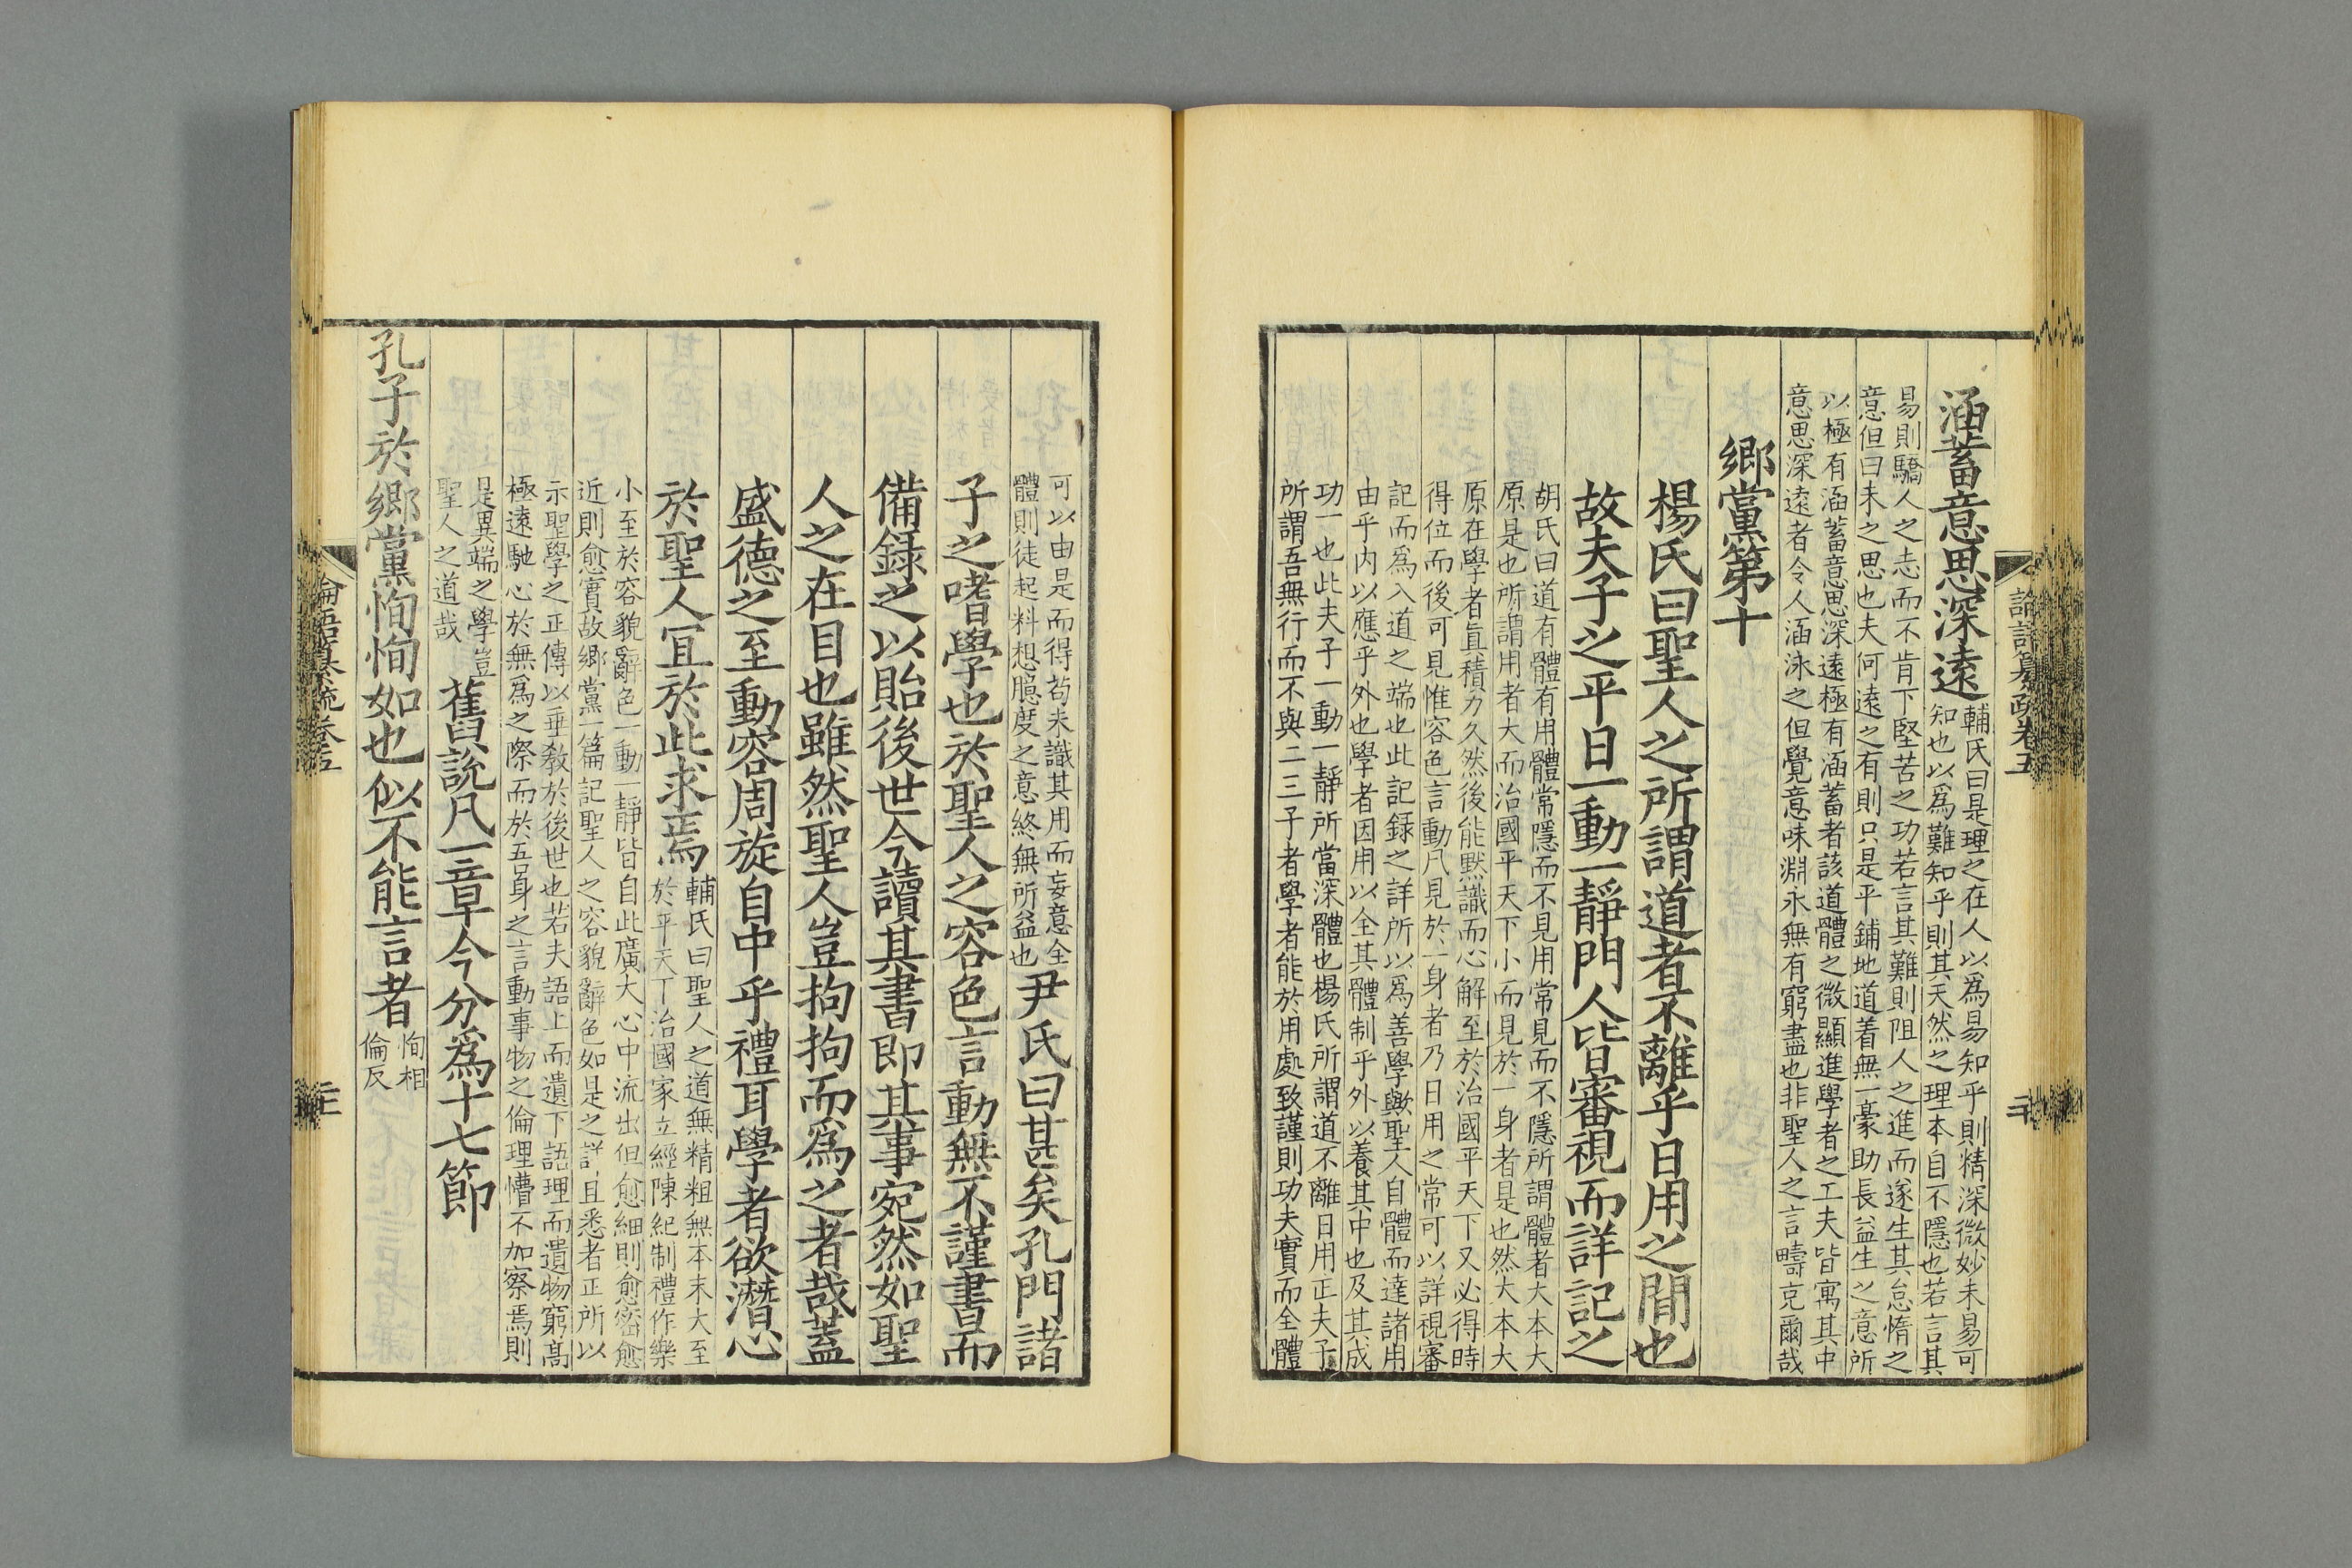 涵蓄意思深遠
輔氏曰是理之在人以為易知乎則精深微妙未易可
知也以為難知乎則其天然之理本自不隱也若言其
易則驕人之志而不肯下堅苦之功若言其難則阻人之進而遂生其怠惰之
意但曰未之思也夫何遠之有則只是平鋪地道着無一豪助長益生之意所
以極有涵蓄意思深遠極有涵蓄者該道體之微顯進學者之工夫皆寓其中
意思深遠者令人涵泳之但覺意味淵永無有窮盡也非聖人之言疇克爾哉
鄉黨第十
楊氏曰聖人之所謂道者不離乎日用之閒也
故夫子之平日一動一靜門人皆審視而詳記之
胡氏曰道有體有用體常隱而不見用常見而不隱所謂體者大本大
原是也所謂用者大而治國平天下小而見於一身者是也然大本大
原在學者眞積力久然後能默識而心解至於治國平天下又必得時
得位而後可見惟容色言動凡見於一身者乃日用之常可以詳視審
記而爲入道之端也此記録之詳所以爲善學與聖人自體而達諸用
由乎内以應乎外也學者因用以全其體制乎外以養其中也及其成
功一也此夫子一動一靜所當深體也楊氏所謂道不離日用正夫子
所謂吾無行而不與二三子者學者能於用處致謹則功夫實而全體
可以由是而得苟未識其用而妄意全
體則徒起料想臆度之意終無所益也
尹氏曰甚矣孔門諸
子之嗜學也於聖人之容色言動無不謹書而
備録之以貽後世今讀其書即其事宛然如聖
人之在目也雖然聖人豈拘拘而爲之者哉蓋
盛德之至動容周旋自中乎禮耳學者欲潛心
於聖人冝於此求焉
輔氏曰聖人之道無精粗無本末大至
於平天下治國家立經陳紀制禮作樂
小至於容貌辭色一動一靜皆自此廣大心中流出但愈細則愈密愈
近則愈實故鄉黨一篇記聖人之容貌辭色如是之詳且悉者正所以
示聖學之正傳以垂教於後世也若夫語上而遺下語理而遺物窮髙
極遠馳心於無爲之際而於吾身之言動事物之倫理懵不加察焉則
是異端之學豈
聖人之道哉
舊說凡一章今分爲十七節
孔子於鄉黨恂恂如也似不能言者
恂相
倫反